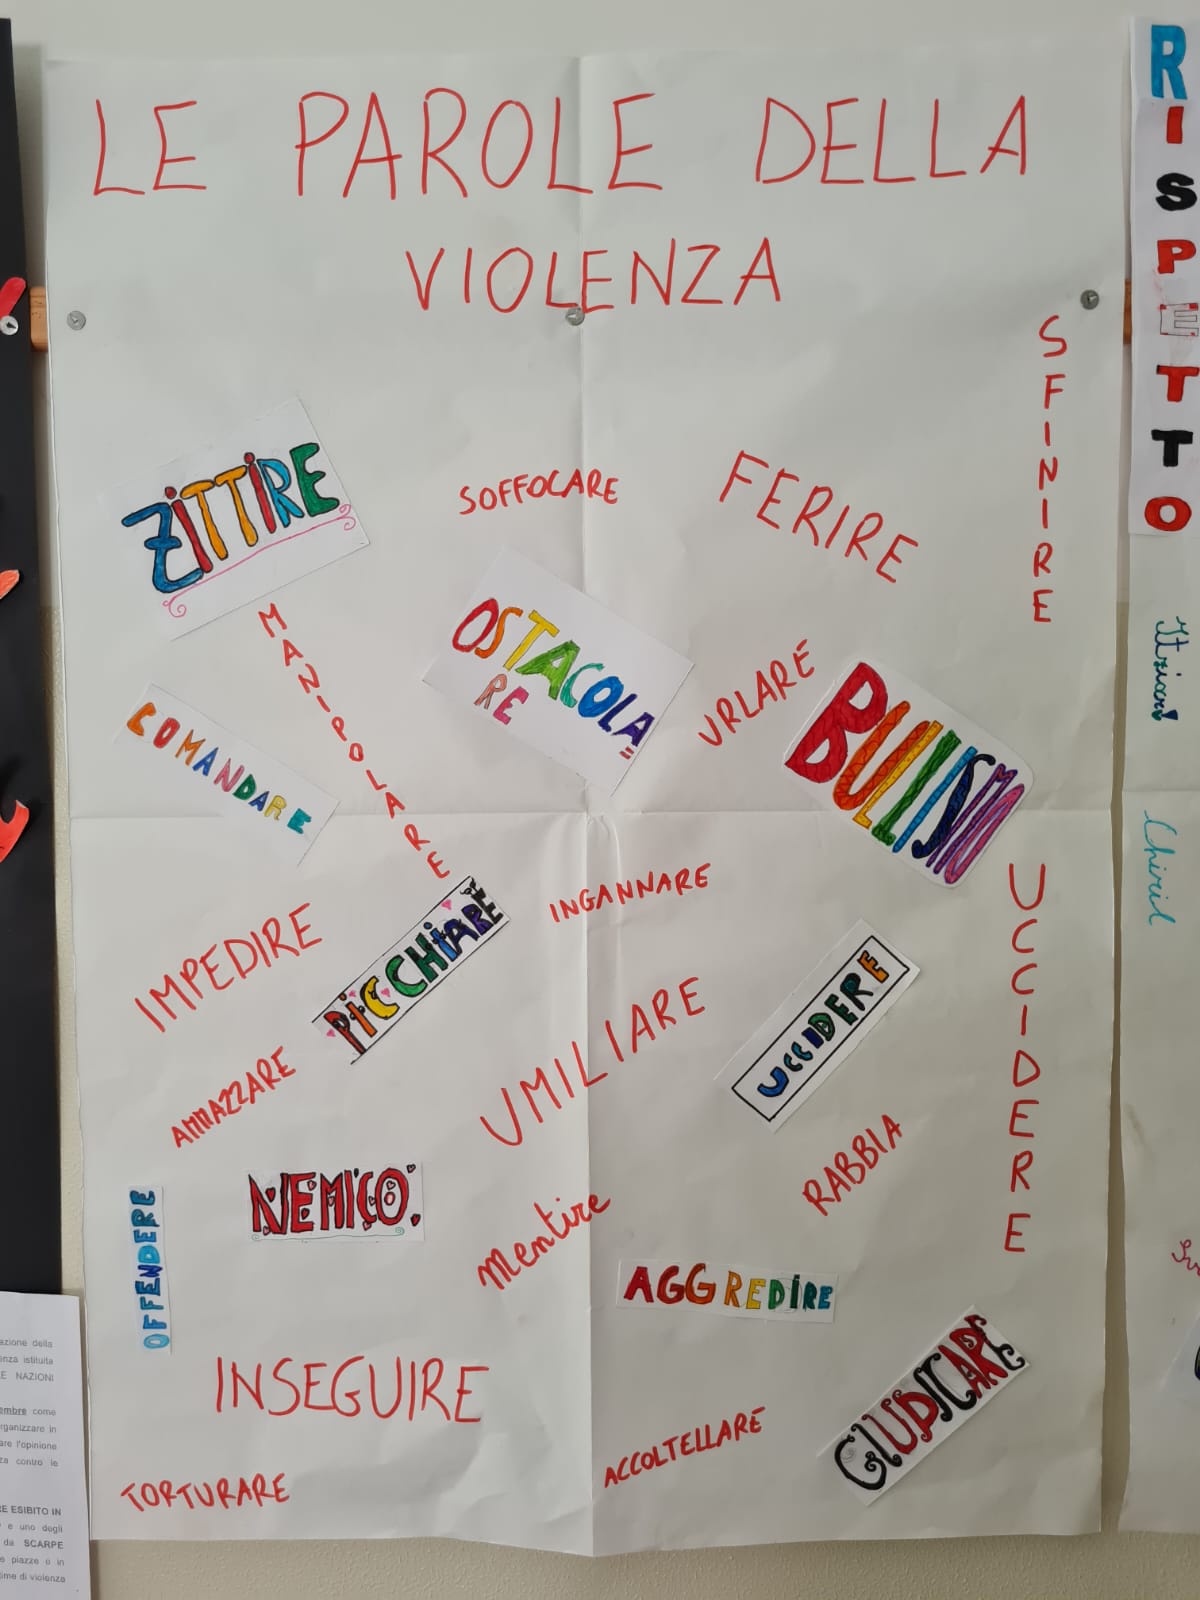 LE PAROLE DELLA
VIOLENZA
SFINIRE
ZITTIRE
SOFFOCARE
FERIRE
MANIPOLARE
OSTACOLA=
RE
URLARE
BULLISMO
COMANDARE
INGANNARE
UCCIDERE
IMPEDIRE
PICCHIARE
UMILIARE
UCCIDERE
AMMAZZARE
RABBIA
NEMICO
OFFENDERE
mentire
AGGREDIRE
INSEGUIRE
GIUDICARE
ACCOLTELLARE
TORTURARE
RISPETTO
azione della
enza istituita
E NAZIONI
embre come
rganizzare in
are l'opinione
za contro le
RE ESIBITO IN
e uno degli
da SCARPE
e piazze o in
time di violenza